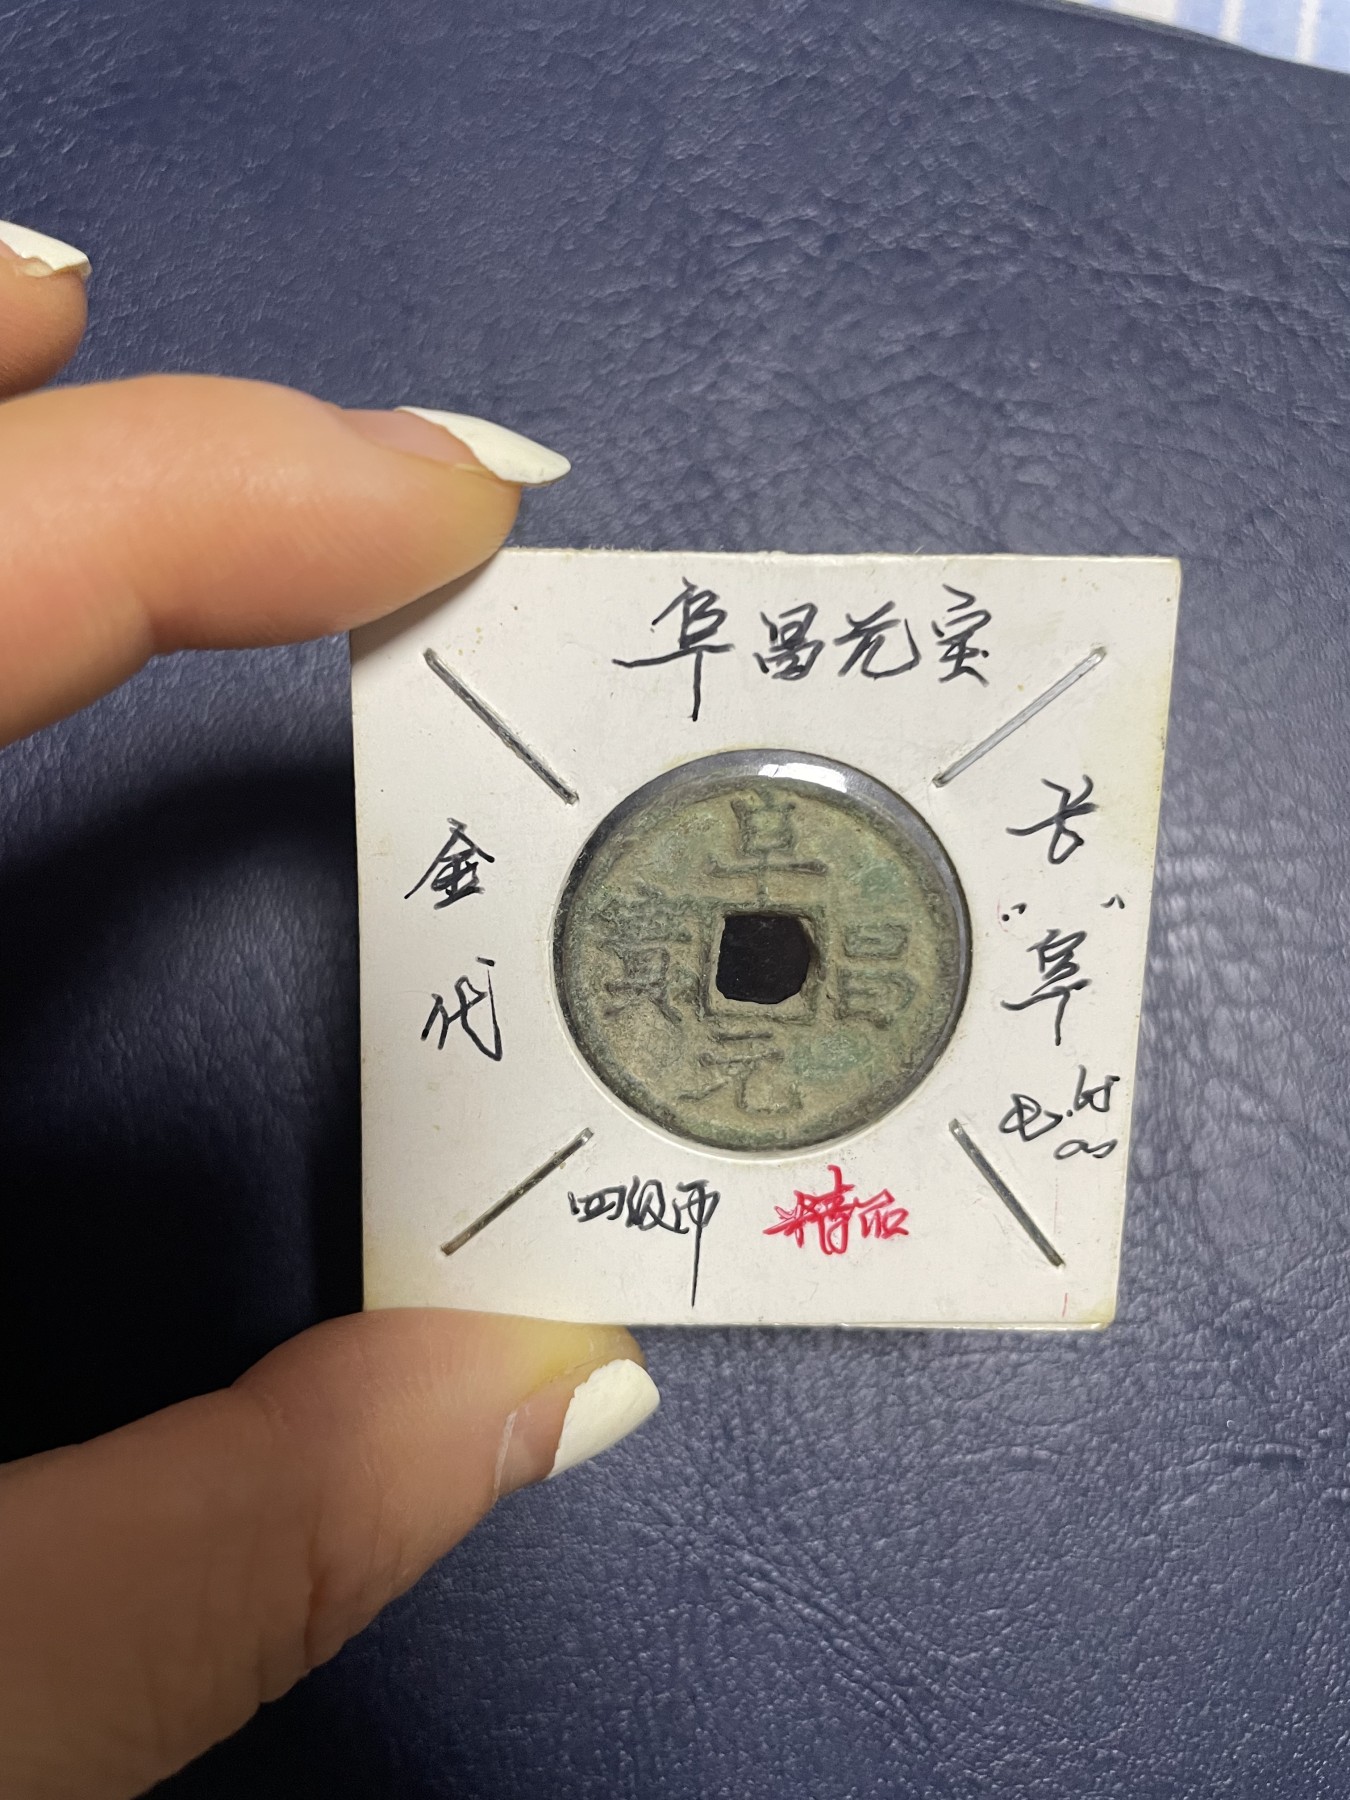 阜昌元宝
金代
长"阜"
四级币 精品
阜昌元寳